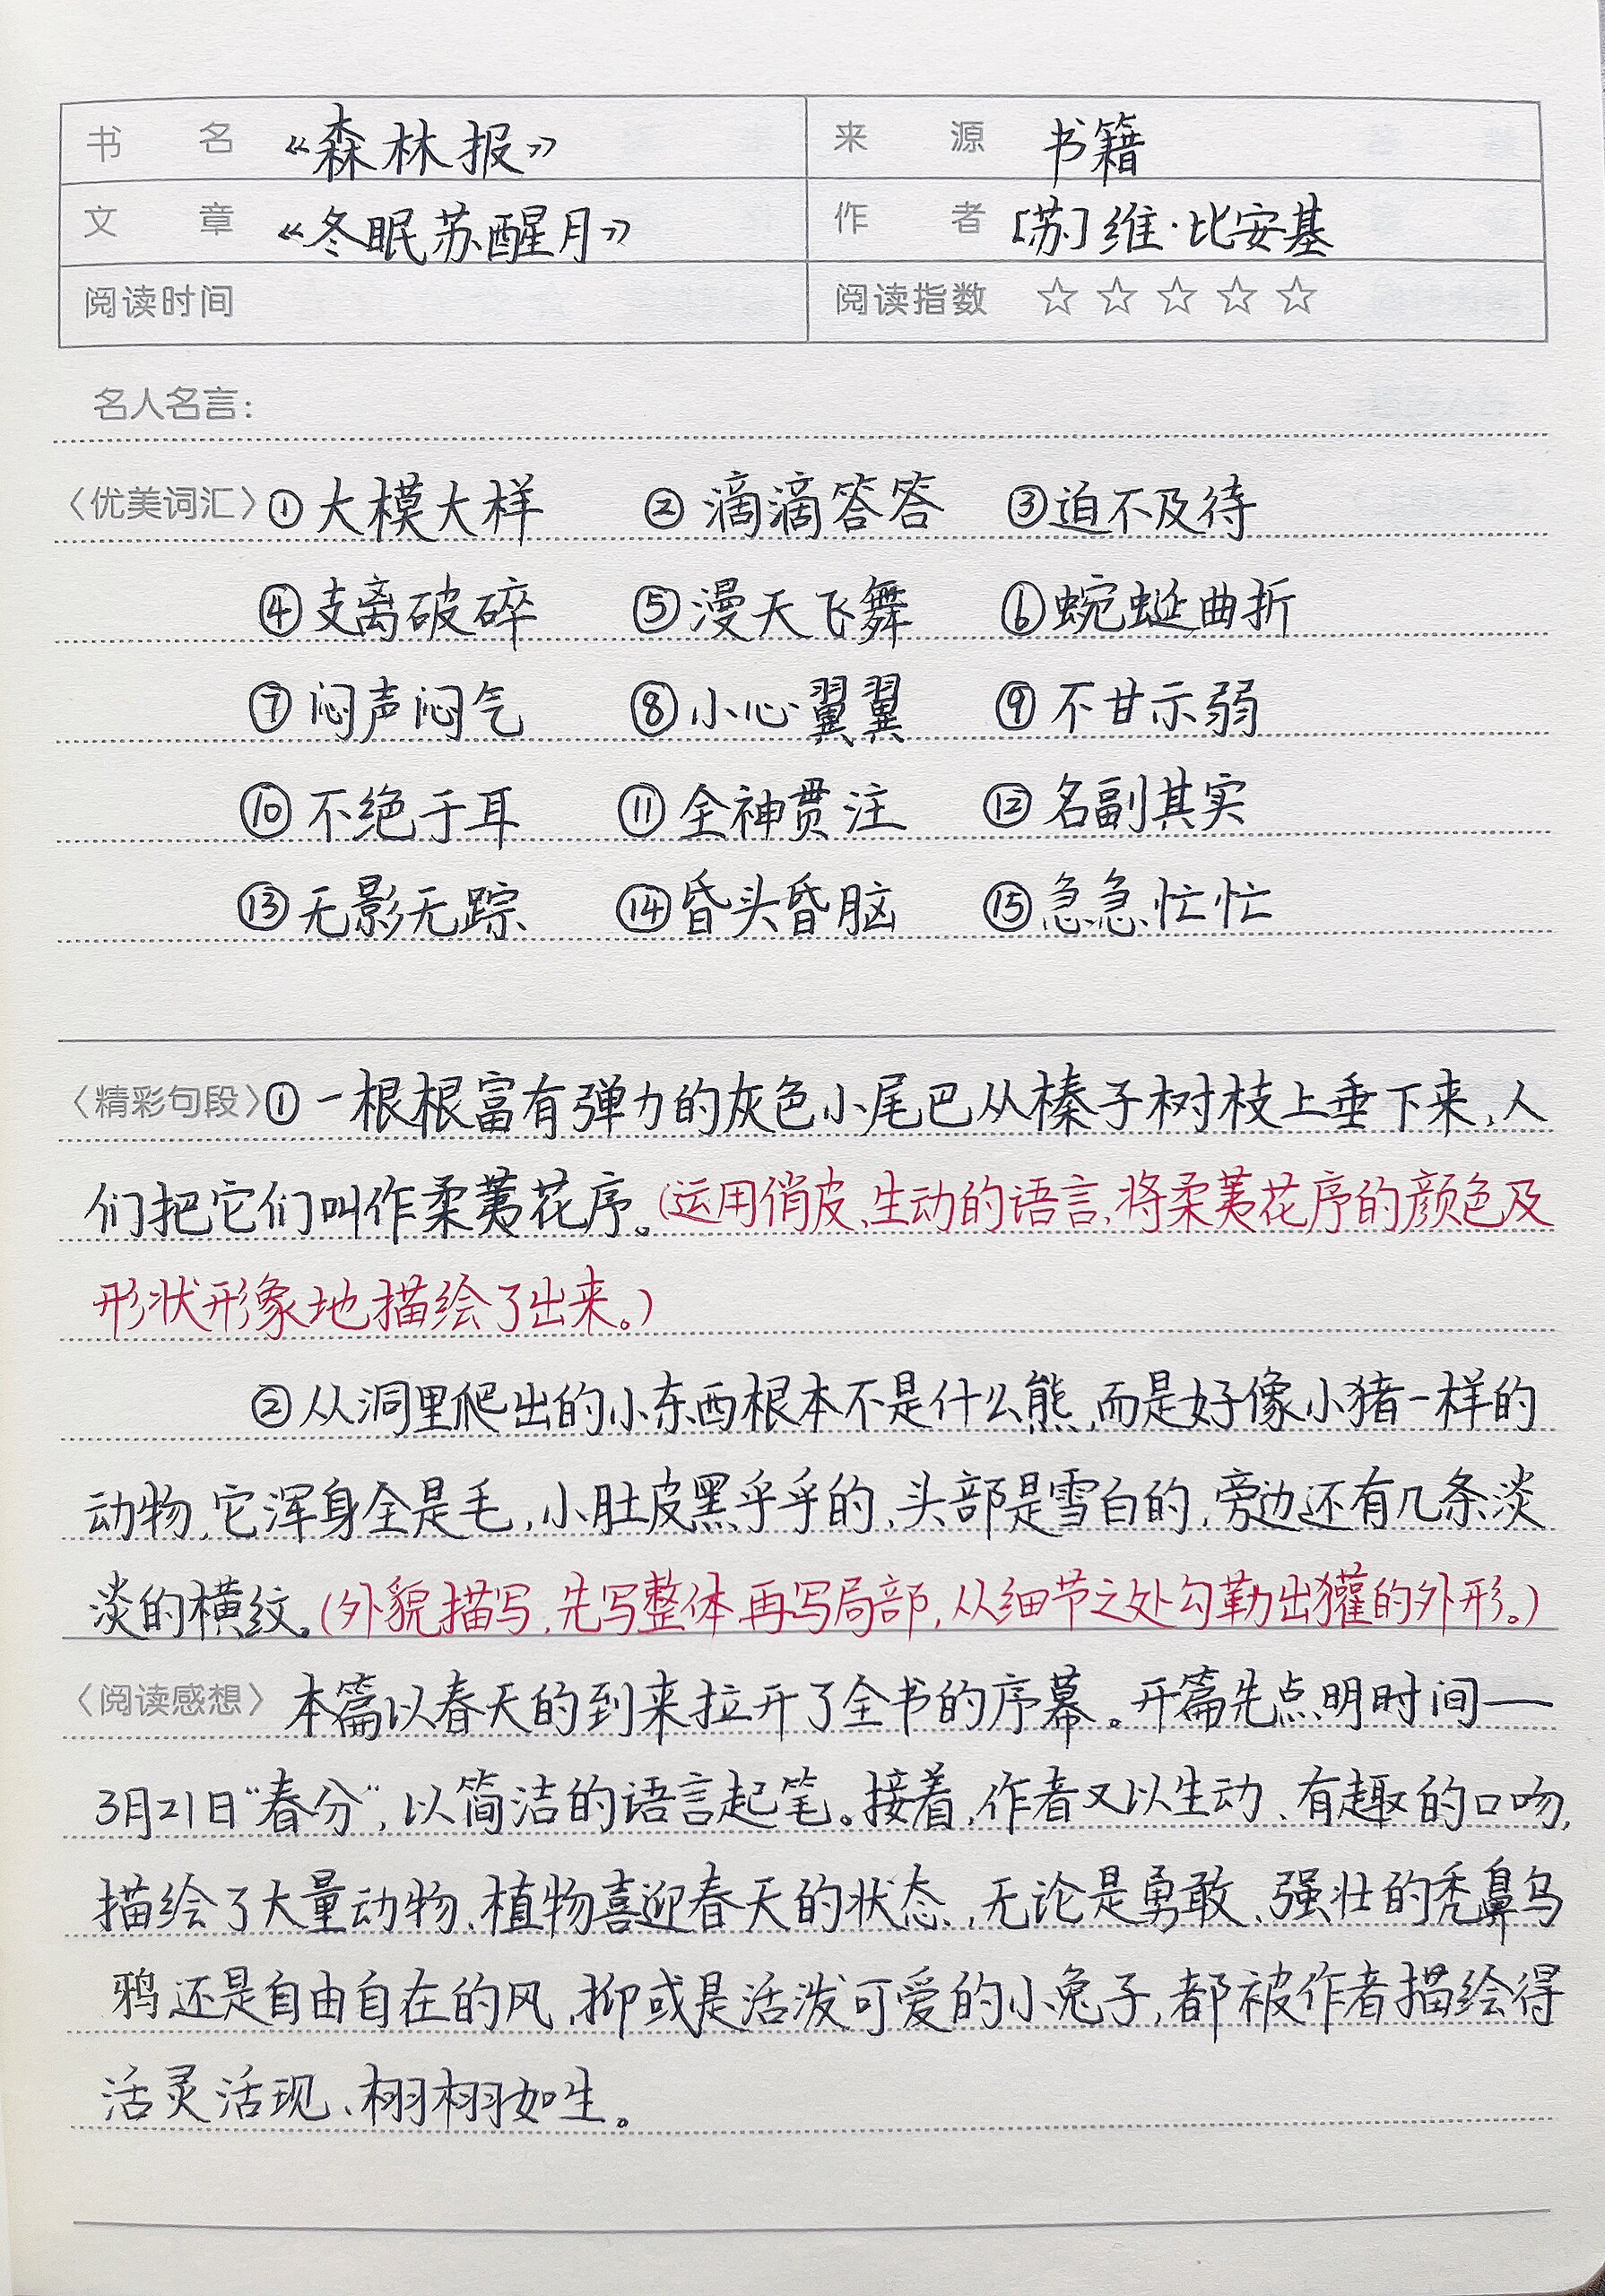 书名 《森林报》 来源 书籍
文章 《冬眠苏醒月》 作者 [苏]维·比安基
阅读时间 阅读指数 ☆☆☆☆☆
名人名言：
〈优美词汇〉①大模大样 ②滴滴答答 ③迫不及待
④支离破碎 ⑤漫天飞舞 ⑥蜿蜒曲折
⑦闷声闷气 ⑧小心翼翼 ⑨不甘示弱
⑩不绝于耳 ⑪全神贯注 ⑫名副其实
⑬无影无踪 ⑭昏头昏脑 ⑮急急忙忙
〈精彩句段〉①一根根富有弹力的灰色小尾巴从榛子树枝上垂下来，人
们把它们叫作柔荑花序。（运用俏皮、生动的语言，将柔荑花序的颜色及
形状形象地描绘了出来。）
②从洞里爬出的小东西根本不是什么熊，而是好像小猪一样的
动物，它浑身全是毛，小肚皮黑乎乎的，头部是雪白的，旁边还有几条淡
淡的横纹。（外貌描写，先写整体，再写局部，从细节之处勾勒出獾的外形。）
〈阅读感想〉本篇以春天的到来拉开了全书的序幕。开篇先点明时间——
3月21日“春分”，以简洁的语言起笔。接着，作者又以生动、有趣的口吻，
描绘了大量动物、植物喜迎春天的状态，无论是勇敢、强壮的秃鼻乌
鸦还是自由自在的风，抑或是活泼可爱的小兔子，都被作者描绘得
活灵活现、栩栩如生。